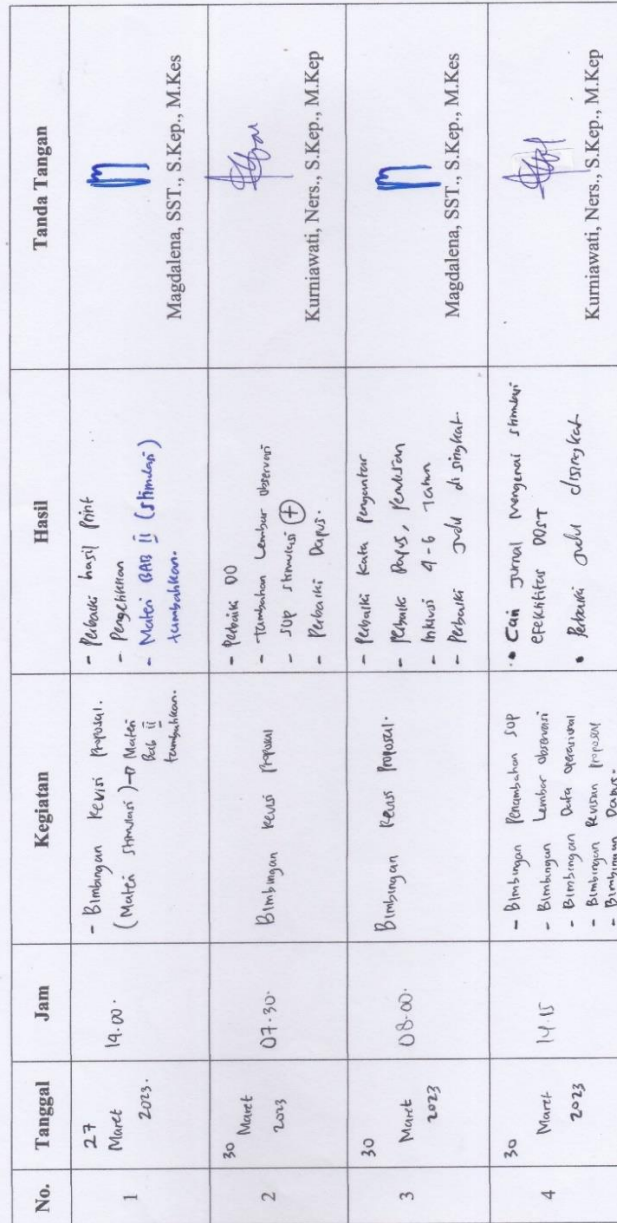 No. Tanggal Jam Kegiatan Hasil Tanda Tangan
1
27
Maret
2023.
14.00.
- Bimbingan Revisi Proposal.
(Materi Stimulasi) → Materi
Bab II
tambahkan.
- Perbaiki hasil Print
- Pengetikkan
- Materi BAB II (stimulasi)
tambahkan.
Magdalena, SST., S.Kep., M.Kes
2
30
Maret
2023
07.30.
Bimbingan Revisi Proposal
- Perbaiki DO
- tambahan Lembar observasi
- SOP stimulasi +
- Perbaiki Dapus.
Kurniawati, Ners., S.Kep., M.Kep
3
30
Maret
2023
08.00.
Bimbingan Revisi Proposal.
- Perbaiki Kata Pengantar
- Perbaiki Dapus, Penulisan
- Inklusi 4-6 Tahun
- Perbaiki Judul disingkat
Magdalena, SST., S.Kep., M.Kes
4
30
Maret
2023
14.15
- Bimbingan Penambahan SOP
- Bimbingan Lembar observasi
- Bimbingan Data operasional
- Bimbingan Revisian Proposal
- Bimbingan Dapus.
• Cari Jurnal mengenai stimulasi
efektifitas DDST
• Perbaiki Judul disingkat
Kurniawati, Ners., S.Kep., M.Kep